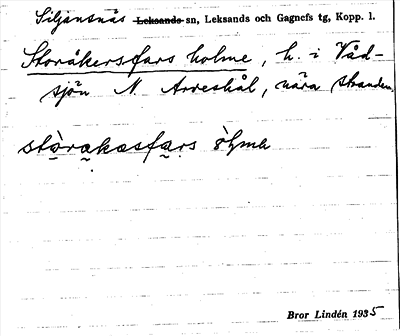 Siljansnäs Leksands sn, Leksands och Gagnefs tg, Kopp. l.
Storåkersfars holme, h. i Våd-
sjön N. Arreskål, nära stranden.
Bror Lindén 1935